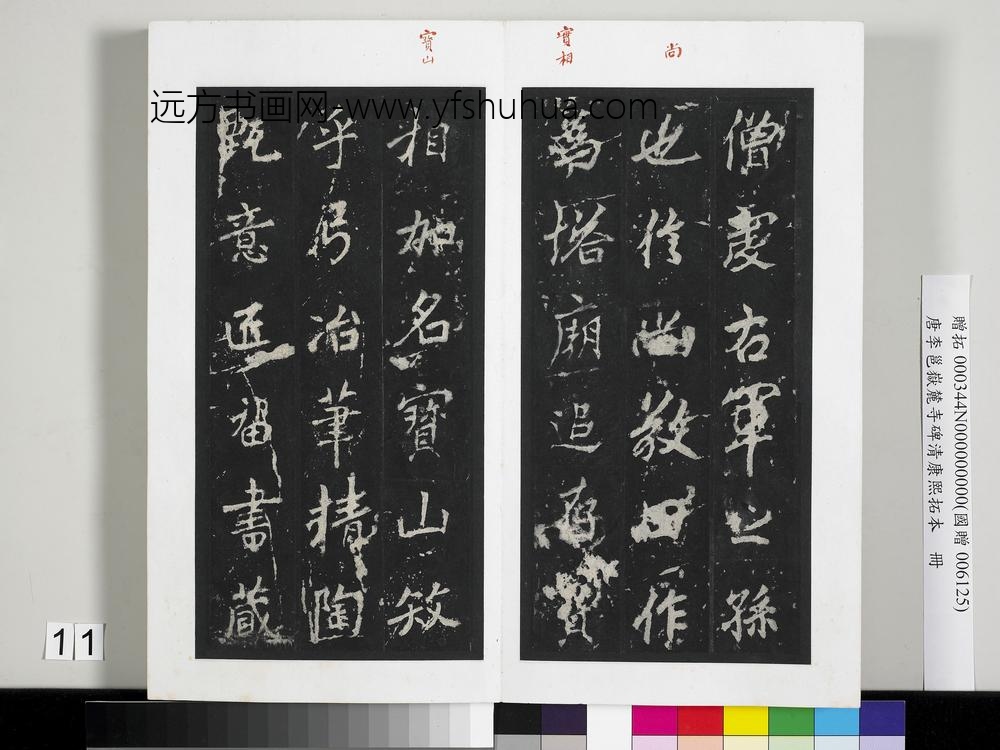 寶山
寶相
尚
远方书画网 www.yfshuhua.com
僧虔右軍之孫
也信尚敬田作
為塔廟追存寶
相加名寶山
乎弓冶筆精陶
甄意匠留書藏
11
贈拓 000344N000000000(國贈 006125)
唐李邕嶽麓寺碑清康熙拓本 冊